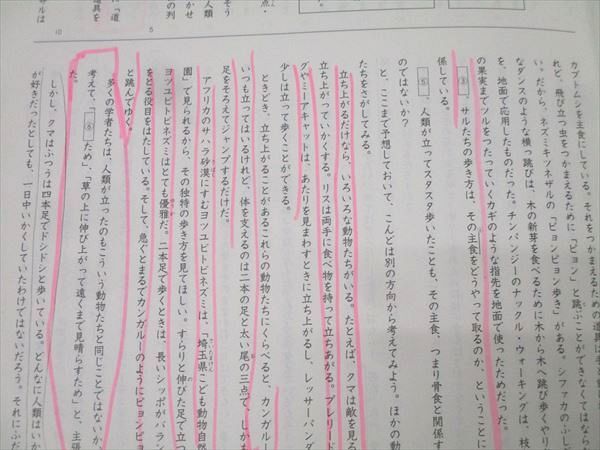 カブトムシを主食にしている。それをつかまえるための道具は
れど、飛び立つ虫をつかまえるために「ピョン」と跳ぶことができなくてはならな
い。だから、ネズミキツネザルの「ピョンピョン歩き」がある。シファカのふしぎ
なダンスのような横っ跳びは、木の新芽を食べるために木から木へ跳び歩くやり
を、地面で応用したものだった。チンパンジーのナックル・ウォーキングは、枝
の果実までツルをつたっていくカギのような指先を地面で使ったためだった。
③、サルたちの歩き方は、その主食をどうやって取るのか、ということに
係している。
⑤、人類が立ってスタスタ歩いたことも、その主食、つまり骨食と関係す
のではないか?
と、ここまで予想しておいて、こんどは別の方向から考えてみよう。ほかの動
たちをさがしてみる。
立ち上がるだけなら、いろいろな動物たちがいる。たとえば、クマは敵を見る
立ち上がっていかくする。リスは両手に食べ物を持って立ちあがる。プレリード
グやミーアキャットは、あたりを見まわすときに立ち上がるし、レッサーパンダ
少しは立って歩くことができる。
ときどき、立ち上がることがあるこれらの動物たちにくらべると、カンガルー
いつも立ってはいるけれど、体を支えるのは二本の足と太い尾の三点で、しかも
足をそろえてジャンプするだけだ。
アフリカのサハラ砂漠にすむヨツユビトビネズミは、「埼玉県こども動物自然
園」で見られるから、その独特の歩き方を見てほしい。すらりと伸びた足で立つ
ヨツユビトビネズミはとても優雅だ。二本足で歩くときは、長いシッポがバラン
をとる役目をはたしている。そして、急ぐとまるでカンガルーのようにピョンピョ
と跳んでゆく。
多くの学者たちは、人類が立ったのもこういう動物たちと同じことではないか、
考えて、「⑥ため」、「草の上に伸び上がって遠くまで見晴らすため」と、主張
た。
しかし、クマはふつうは四本足でドシドシと歩いている。どんなに人類はいか
が好きだったとしても、一日中いかくしていたわけではないだろう。それにふだ